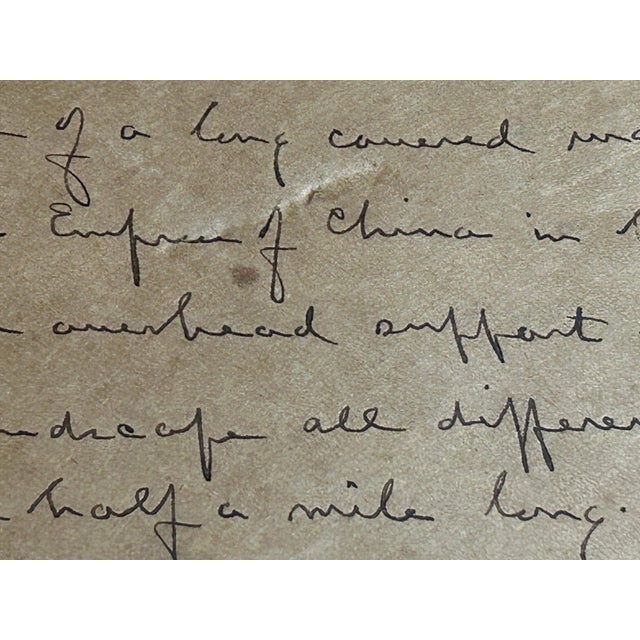 of a long covered
Empress of China in
overhead support
landscape all differen
half a mile long.